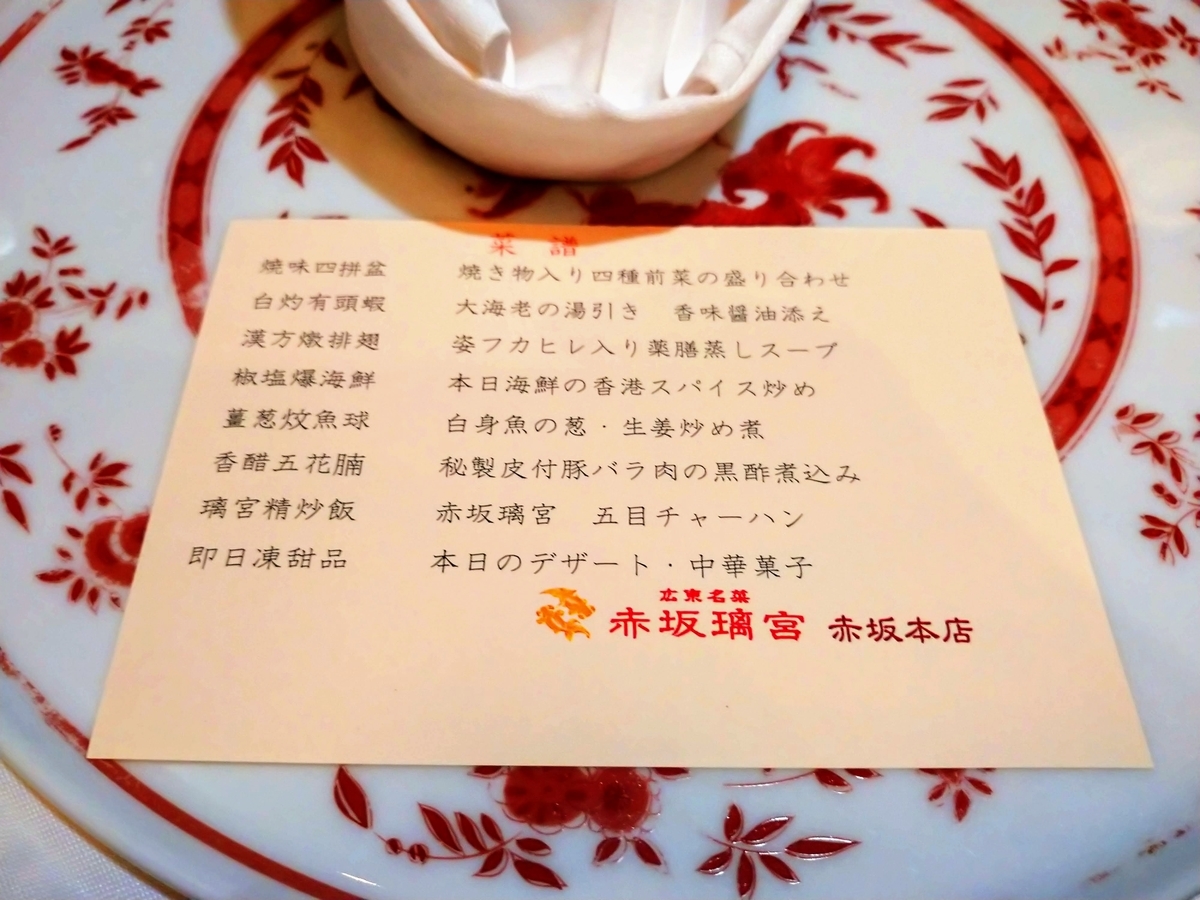 菜譜
焼味四拼盆 焼き物入り四種前菜の盛り合わせ
白灼有頭蝦 大海老の湯引き 香味醤油添え
漢方燉排翅 姿フカヒレ入り薬膳蒸しスープ
椒塩爆海鮮 本日海鮮の香港スパイス炒め
薑葱炆魚球 白身魚の葱・生姜炒め煮
香醋五花腩 秘製皮付豚バラ肉の黒酢煮込み
璃宮精炒飯 赤坂璃宮 五目チャーハン
即日凍甜品 本日のデザート・中華菓子
広東名菜
赤坂璃宮 赤坂本店